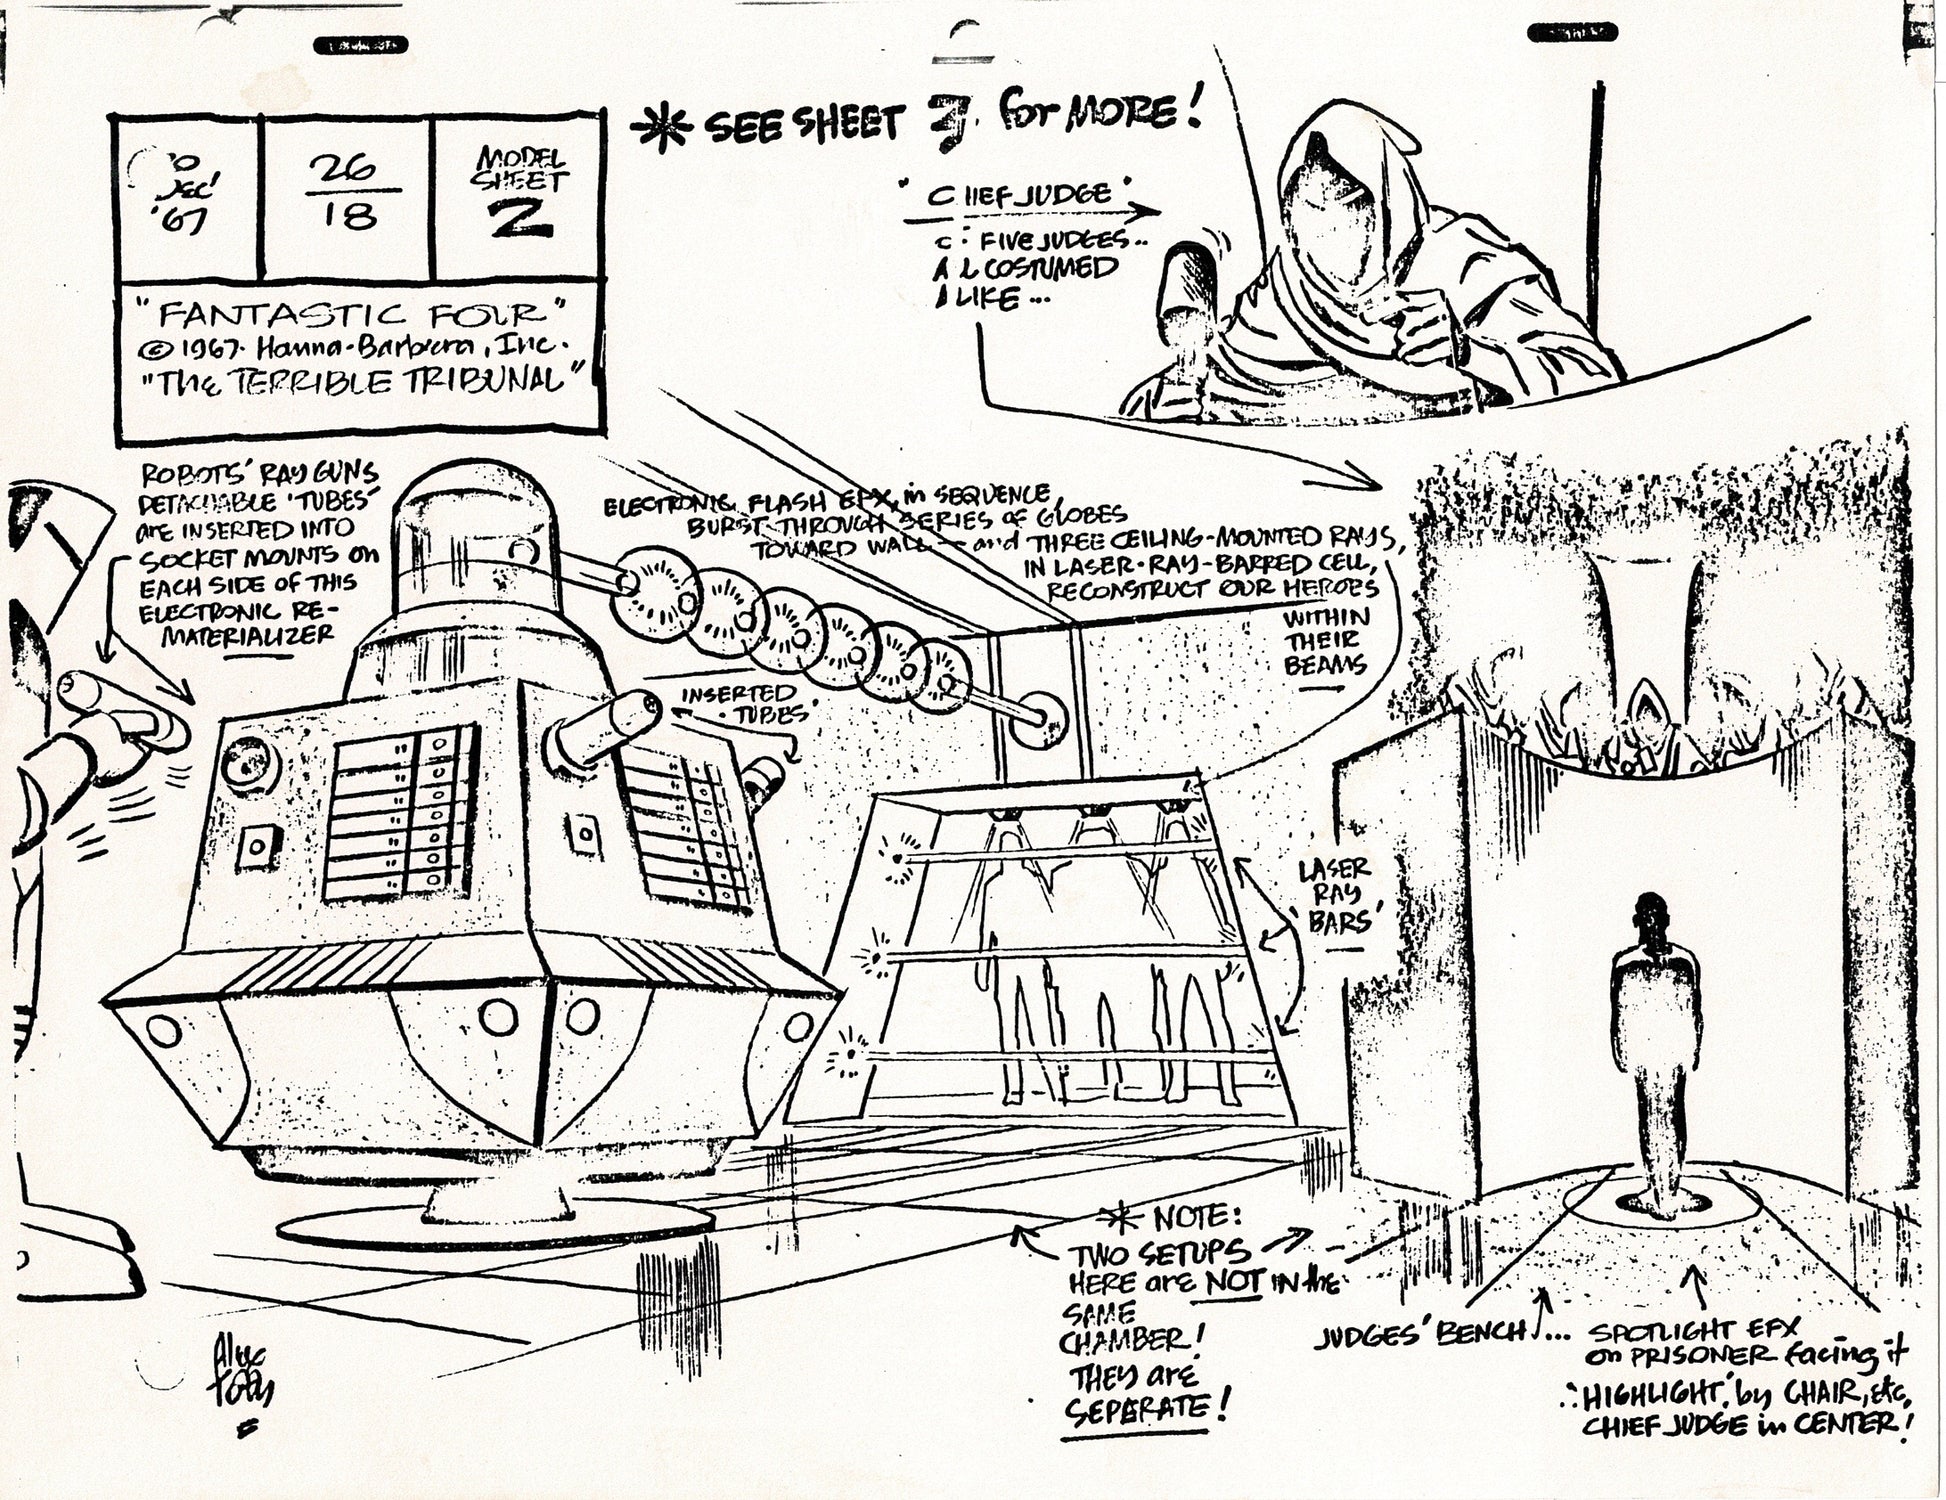 * SEE SHEET 3. for MORE!
DEC '67
26
18
MODEL
SHEET
2
"FANTASTIC FOUR"
© 1967. Hanna-Barbera, Inc.
"The TERRIBLE TRIBUNAL"
"CHIEF JUDGE"
FIVE JUDGES..
ALL COSTUMED
ALIKE...
ROBOTS' RAY GUNS
DETACHABLE 'TUBES'
are INSERTED INTO
SOCKET MOUNTS on
EACH SIDE OF THIS
ELECTRONIC RE-
MATERIALIZER
ELECTRONIC FLASH EFX, in SEQUENCE,
BURST THROUGH SERIES of GLOBES
TOWARD WALL — and THREE CEILING-MOUNTED RAYS,
IN LASER-RAY-BARRED CELL,
RECONSTRUCT OUR HEROES
WITHIN
THEIR
BEAMS
INSERTED
'TUBES'
LASER
RAY
'BARS'
* NOTE:
TWO SETUPS
HERE are NOT IN the
SAME
CHAMBER!
THEY are
SEPARATE!
JUDGES' BENCH...
SPOTLIGHT EFX
on PRISONER facing it
∴ 'HIGHLIGHT' by CHAIR, etc,
CHIEF JUDGE in CENTER!
Alex
Toth